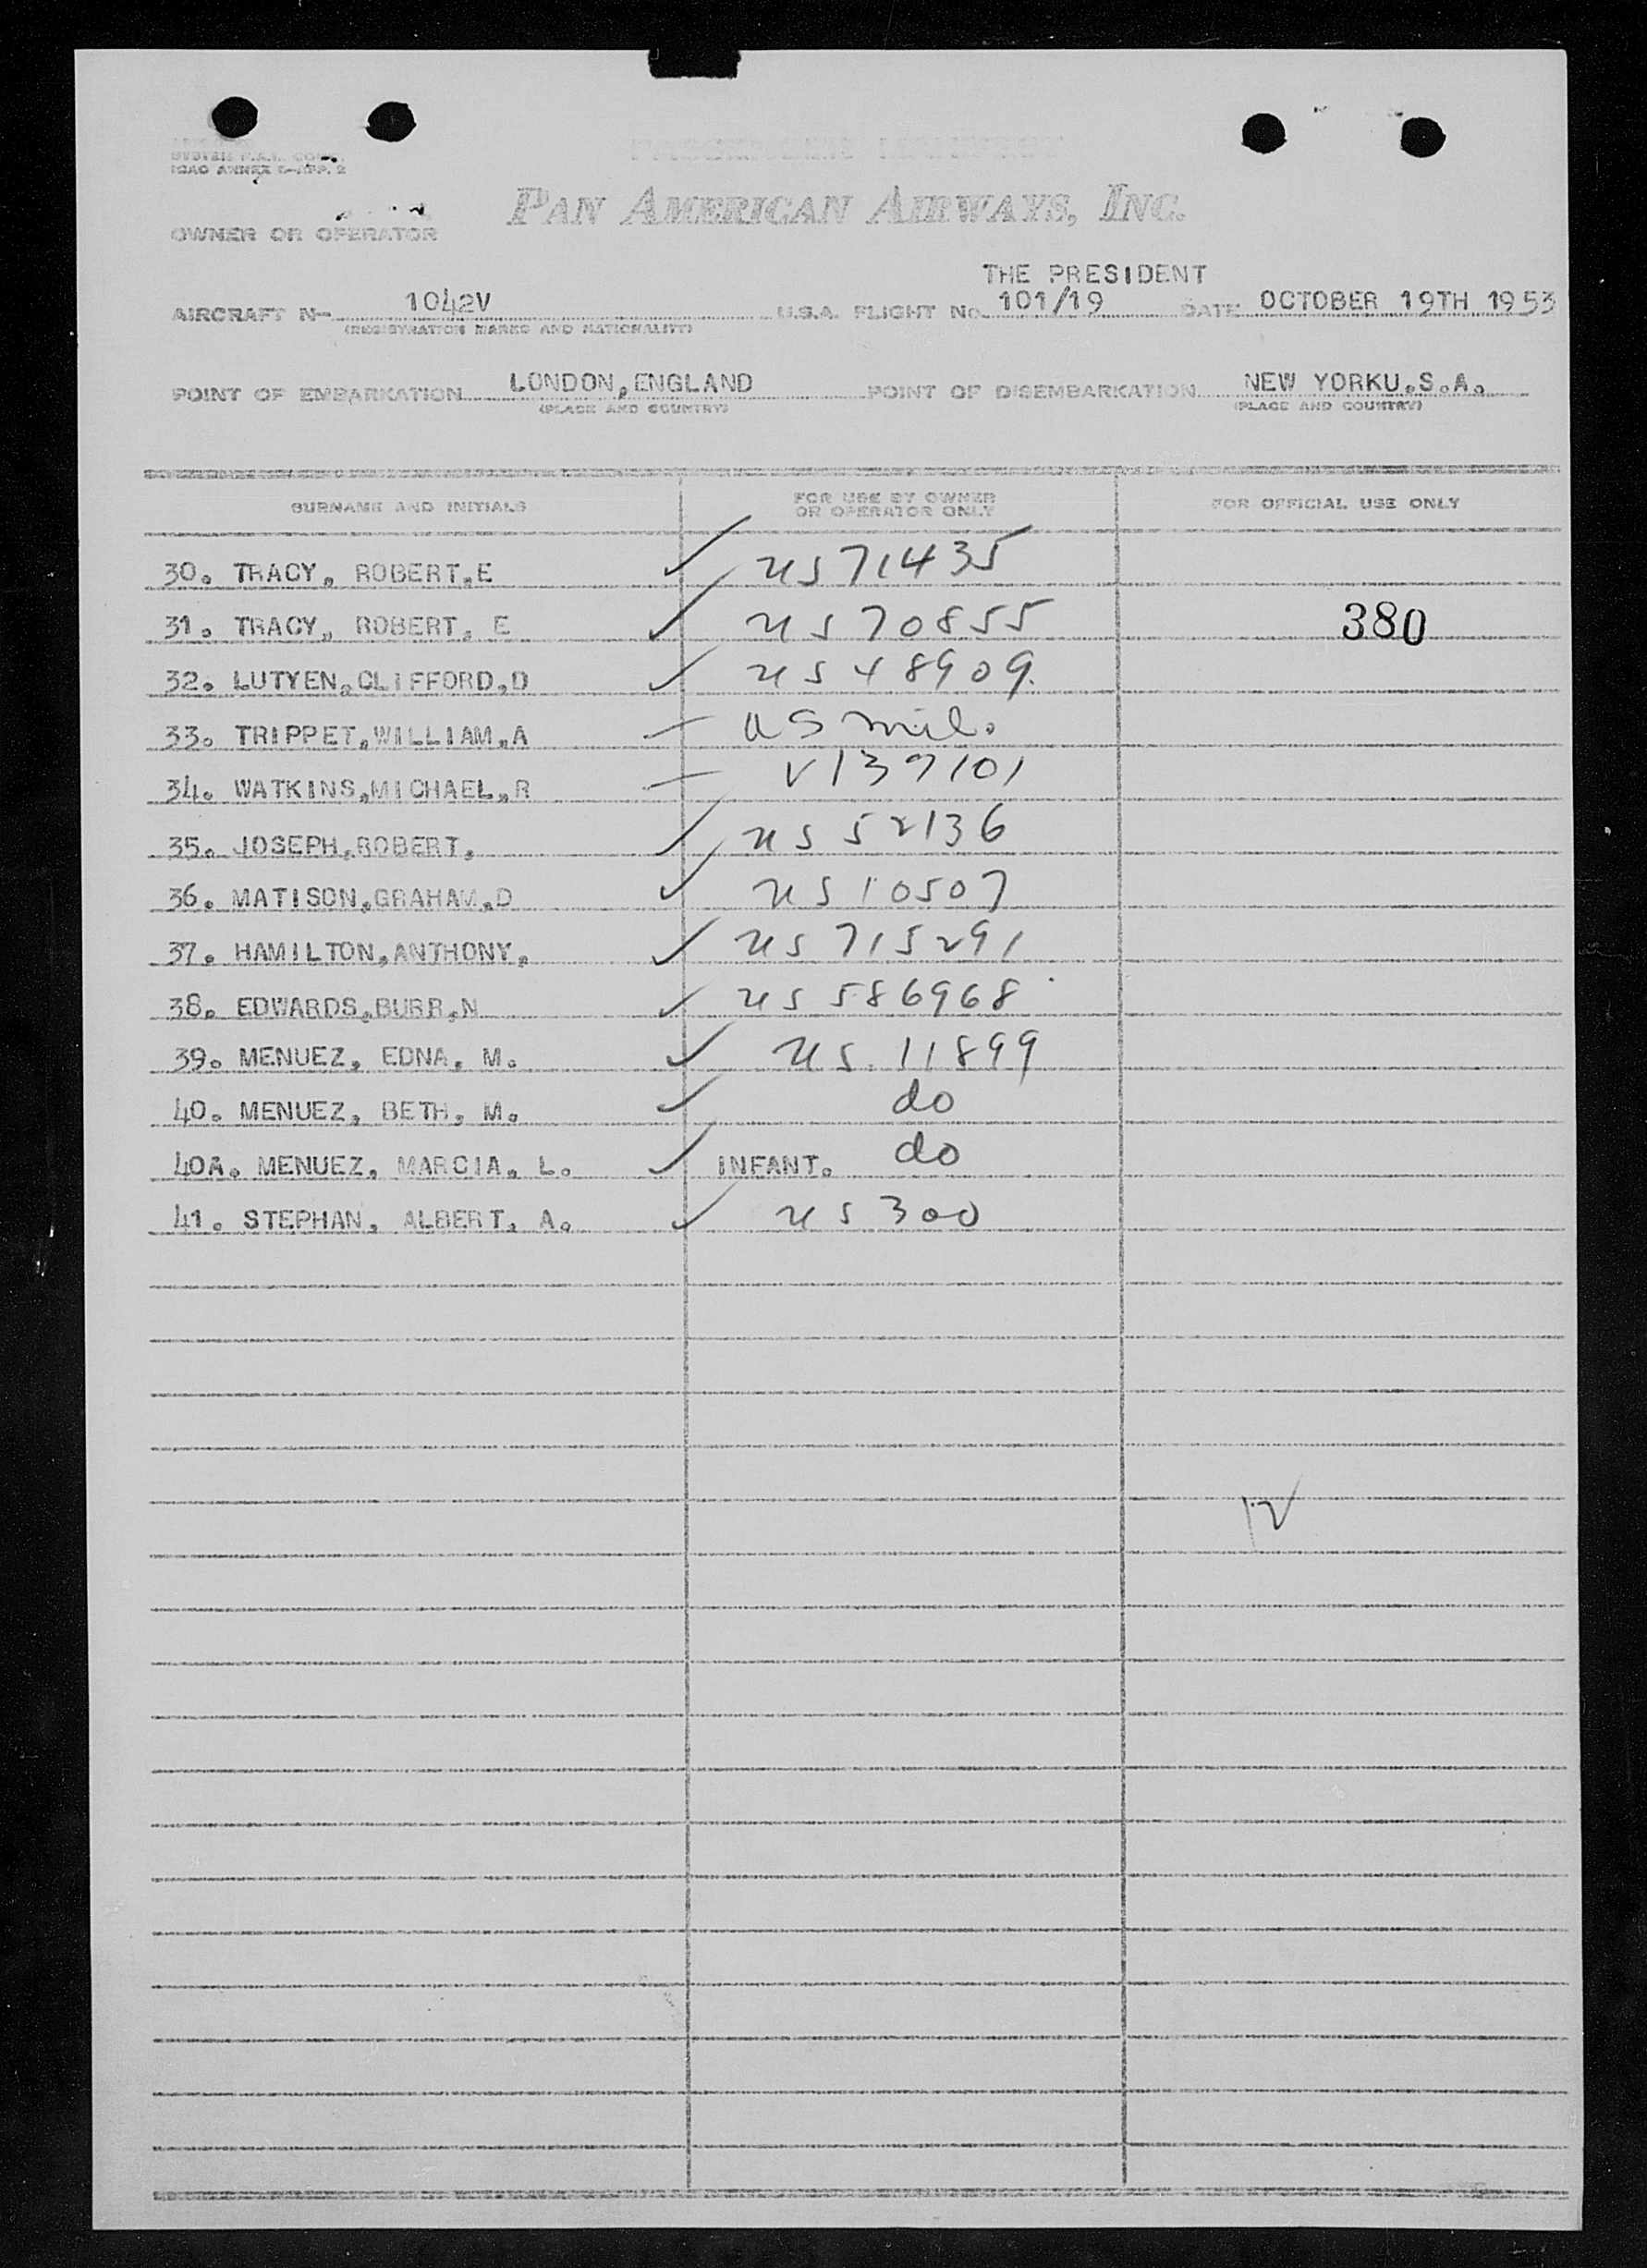 SYSTEM P.A.A. CORP.
ICAO ANNEX 9—APP. 2
PASSENGER MANIFEST
PAN AMERICAN AIRWAYS, INC.
OWNER OR OPERATOR
THE PRESIDENT
AIRCRAFT N— 1042V U.S.A. FLIGHT No. 101/19 DATE OCTOBER 19TH 1953
(REGISTRATION MARKS AND NATIONALITY)
POINT OF EMBARKATION LONDON,ENGLAND POINT OF DISEMBARKATION NEW YORKU.S.A.
(PLACE AND COUNTRY) (PLACE AND COUNTRY)
SURNAME AND INITIALS FOR USE BY OWNER OR OPERATOR ONLY FOR OFFICIAL USE ONLY
30. TRACY, ROBERT,E ✓ US 71435
31. TRACY, ROBERT, E ✓ US 70855 380
32. LUTYEN,CLIFFORD,D ✓ US 48909.
33. TRIPPET,WILLIAM,A — US mil.
34. WATKINS,MICHAEL,R — V139101
35. JOSEPH,ROBERT, ✓ US 52136
36. MATISON,GRAHAM,D ✓ US 10507
37. HAMILTON,ANTHONY, ✓ US 715291
38. EDWARDS,BURR,N ✓ US 586968
39. MENUEZ, EDNA, M. ✓ US 11899
40. MENUEZ, BETH, M. ✓ do
40A. MENUEZ, MARCIA, L. ✓ INFANT. do
41. STEPHAN, ALBERT, A. ✓ US 300
12